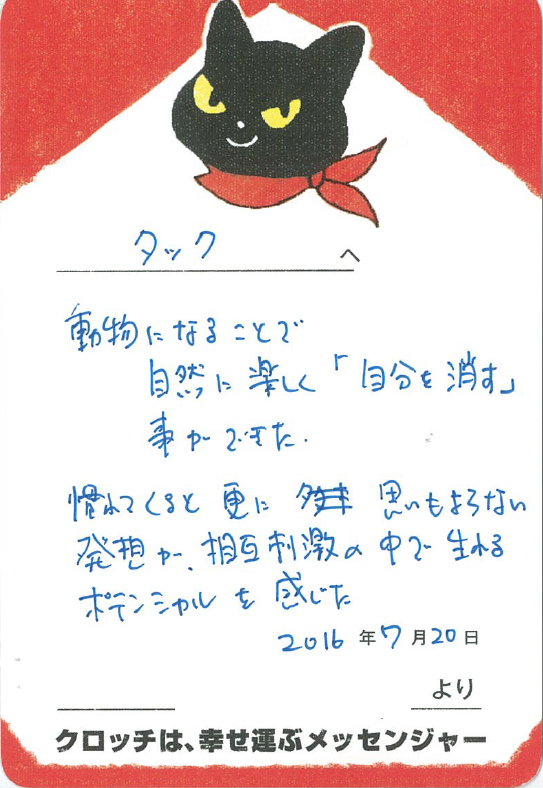 タック へ
動物になることで
自然に楽しく「自分を消す」
事ができた.
慣れてくると更に 思いもよらない
発想が、相互刺激の中で生れる
ポテンシャルを感じた
2016年7月20日
より
クロッチは、幸せ運ぶメッセンジャー